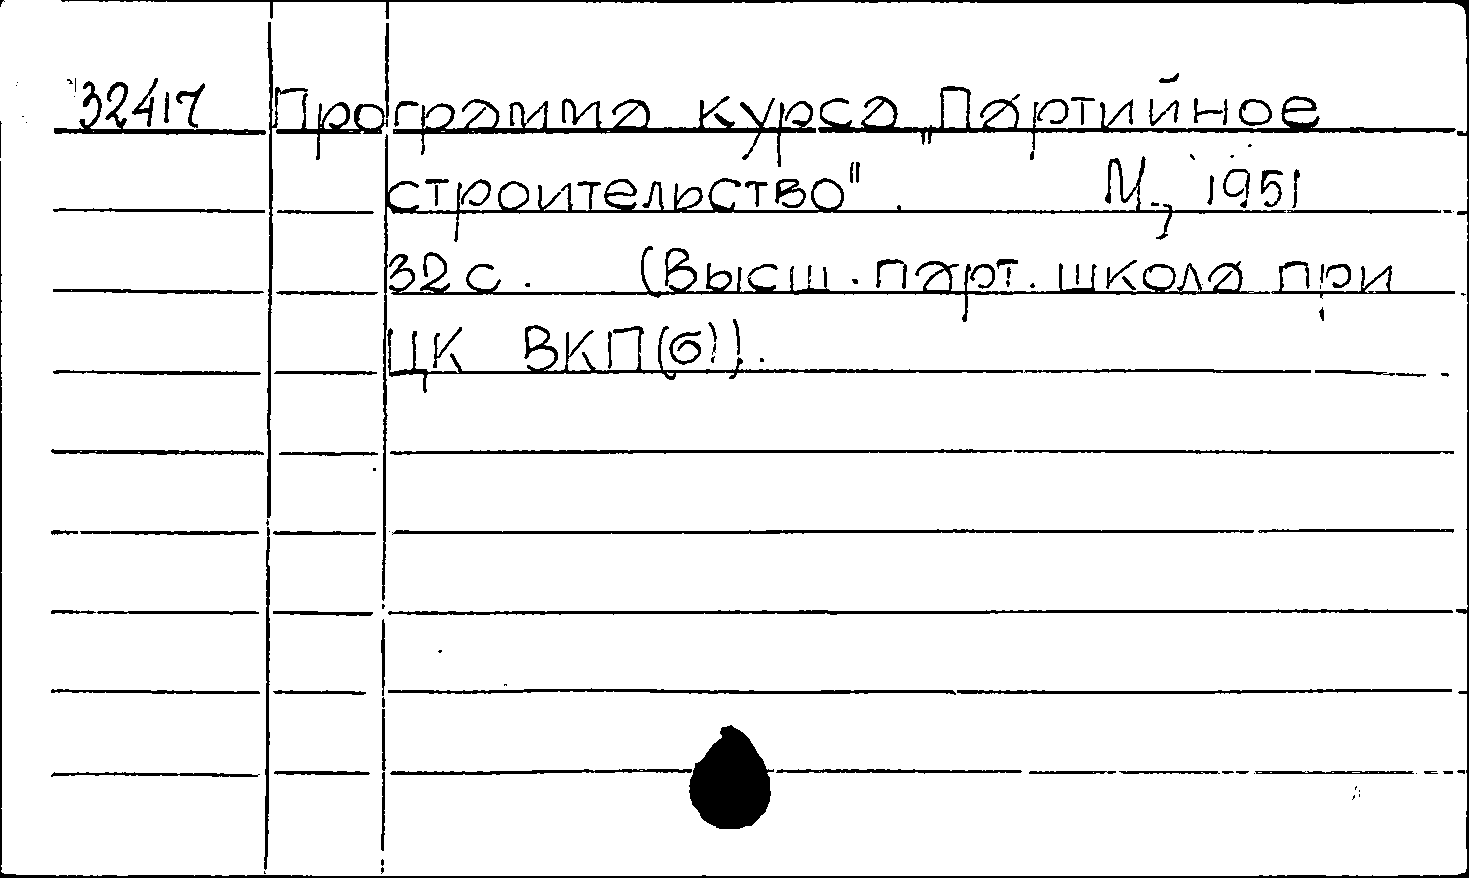 32417 Программа курса „Партийное
строительство". М., 1951
32 с. (Высш. парт. школа при
ЦК ВКП(б)).